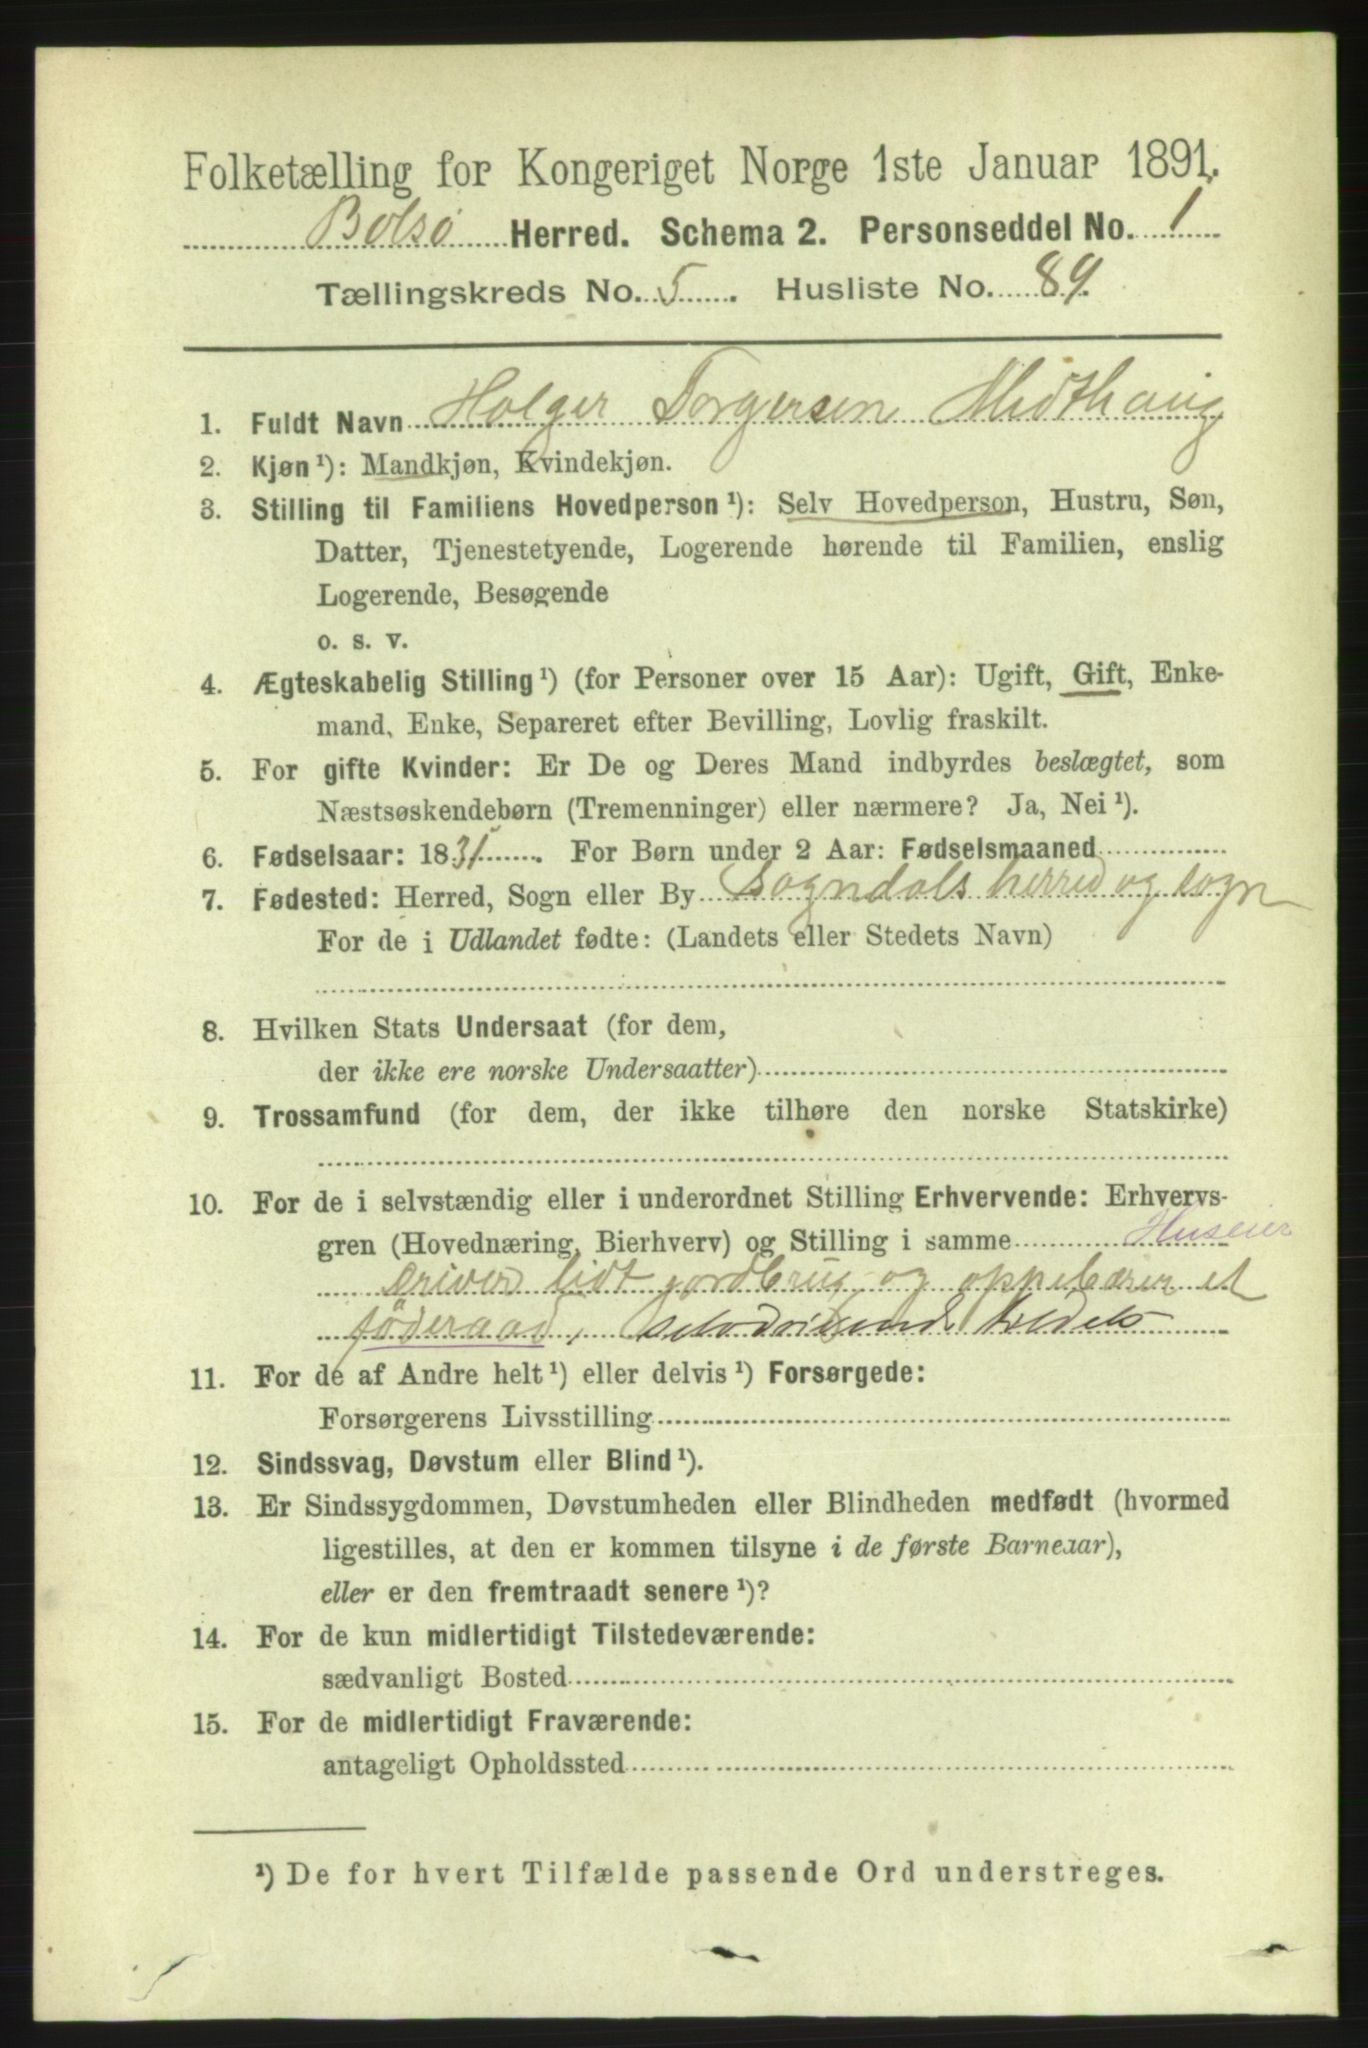 Folketælling for Kongeriget Norge 1ste Januar 1891.
Bolsø Herred. Schema 2. Personseddel No. 1
Tællingskreds No. 5. Husliste No. 89.
1. Fuldt Navn Holger Torgersen Midthaug
2. Kjøn¹): Mandkjøn, Kvindekjøn.
3. Stilling til Familiens Hovedperson¹): Selv Hovedperson, Hustru, Søn,
Datter, Tjenestetyende, Logerende hørende til Familien, enslig
Logerende, Besøgende
o. s. v.
4. Ægteskabelig Stilling¹) (for Personer over 15 Aar): Ugift, Gift, Enke-
mand, Enke, Separeret efter Bevilling, Lovlig fraskilt.
5. For gifte Kvinder: Er De og Deres Mand indbyrdes beslægtet, som
Næstsøskendebørn (Tremenninger) eller nærmere? Ja, Nei¹).
6. Fødselsaar: 1831. For Børn under 2 Aar: Fødselsmaaned
7. Fødested: Herred, Sogn eller By Sogndals herred og sogn
For de i Udlandet fødte: (Landets eller Stedets Navn)
8. Hvilken Stats Undersaat (for dem,
der ikke ere norske Undersaatter)
9. Trossamfund (for dem, der ikke tilhøre den norske Statskirke)
10. For de i selvstændig eller i underordnet Stilling Erhvervende: Erhvervs-
gren (Hovednæring, Bierhverv) og Stilling i samme Huseier
driver lidt jordbrug og oppebærer et
föderaad, selvdrivende
11. For de af Andre helt¹) eller delvis¹) Forsørgede:
Forsørgerens Livsstilling
12. Sindssvag, Døvstum eller Blind¹).
13. Er Sindssygdommen, Døvstumheden eller Blindheden medfødt (hvormed
ligestilles, at den er kommen tilsyne i de første Barneaar),
eller er den fremtraadt senere¹)?
14. For de kun midlertidigt Tilstedeværende:
sædvanligt Bosted
15. For de midlertidigt Fraværende:
antageligt Opholdssted
¹) De for hvert Tilfælde passende Ord understreges.